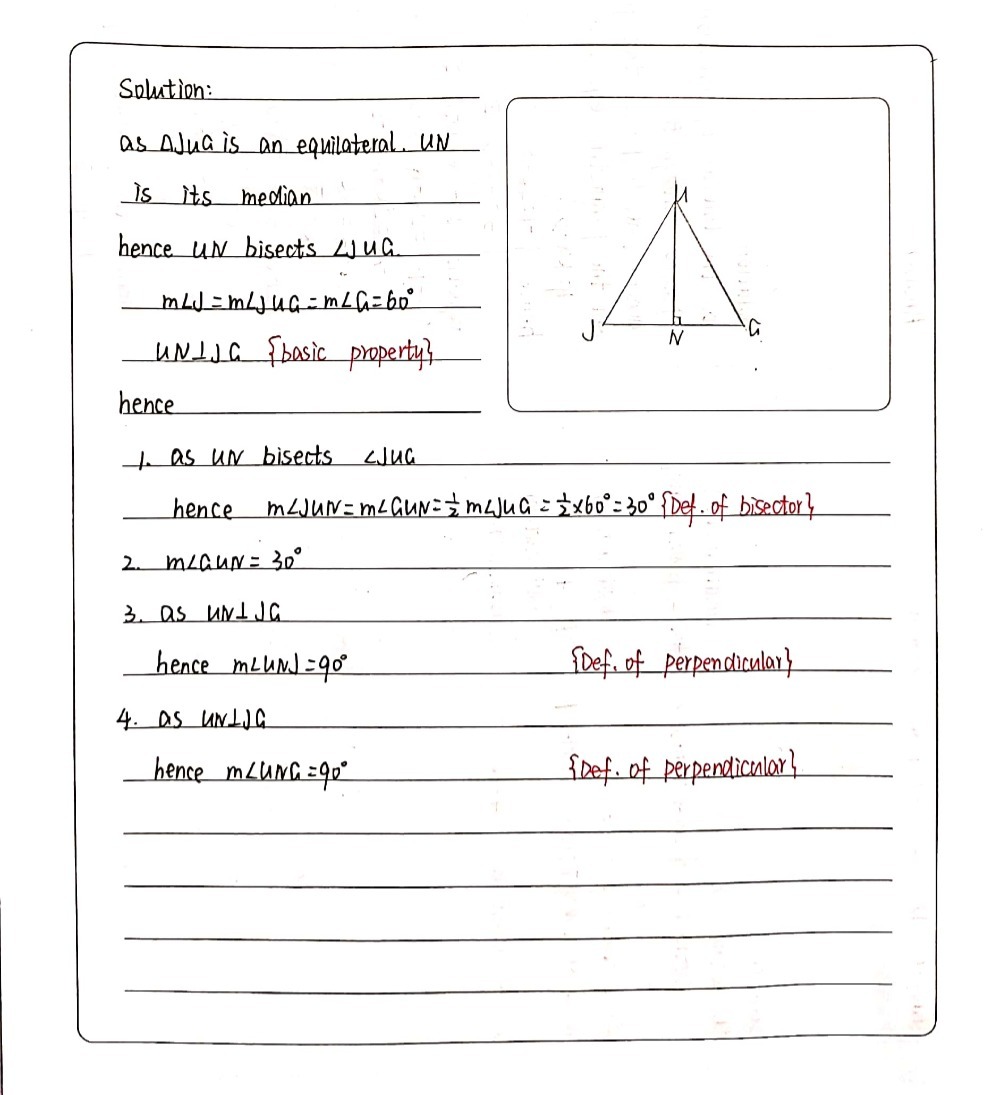 Solution:
as ΔJUG is an equilateral. UN
is its median
hence UN bisects ∠JUG.
m∠J=m∠JUG=m∠G=60°
UN⊥JG {basic property}
hence
U
J
N
G
1. as UN bisects ∠JUG
hence m∠JUN=m∠GUN=½m∠JUG=½×60°=30° {Def. of bisector}
2. m∠GUN=30°
3. as UN⊥JG
hence m∠UNJ=90° {Def. of perpendicular}
4. as UN⊥JG
hence m∠UNG=90° {Def. of perpendicular}